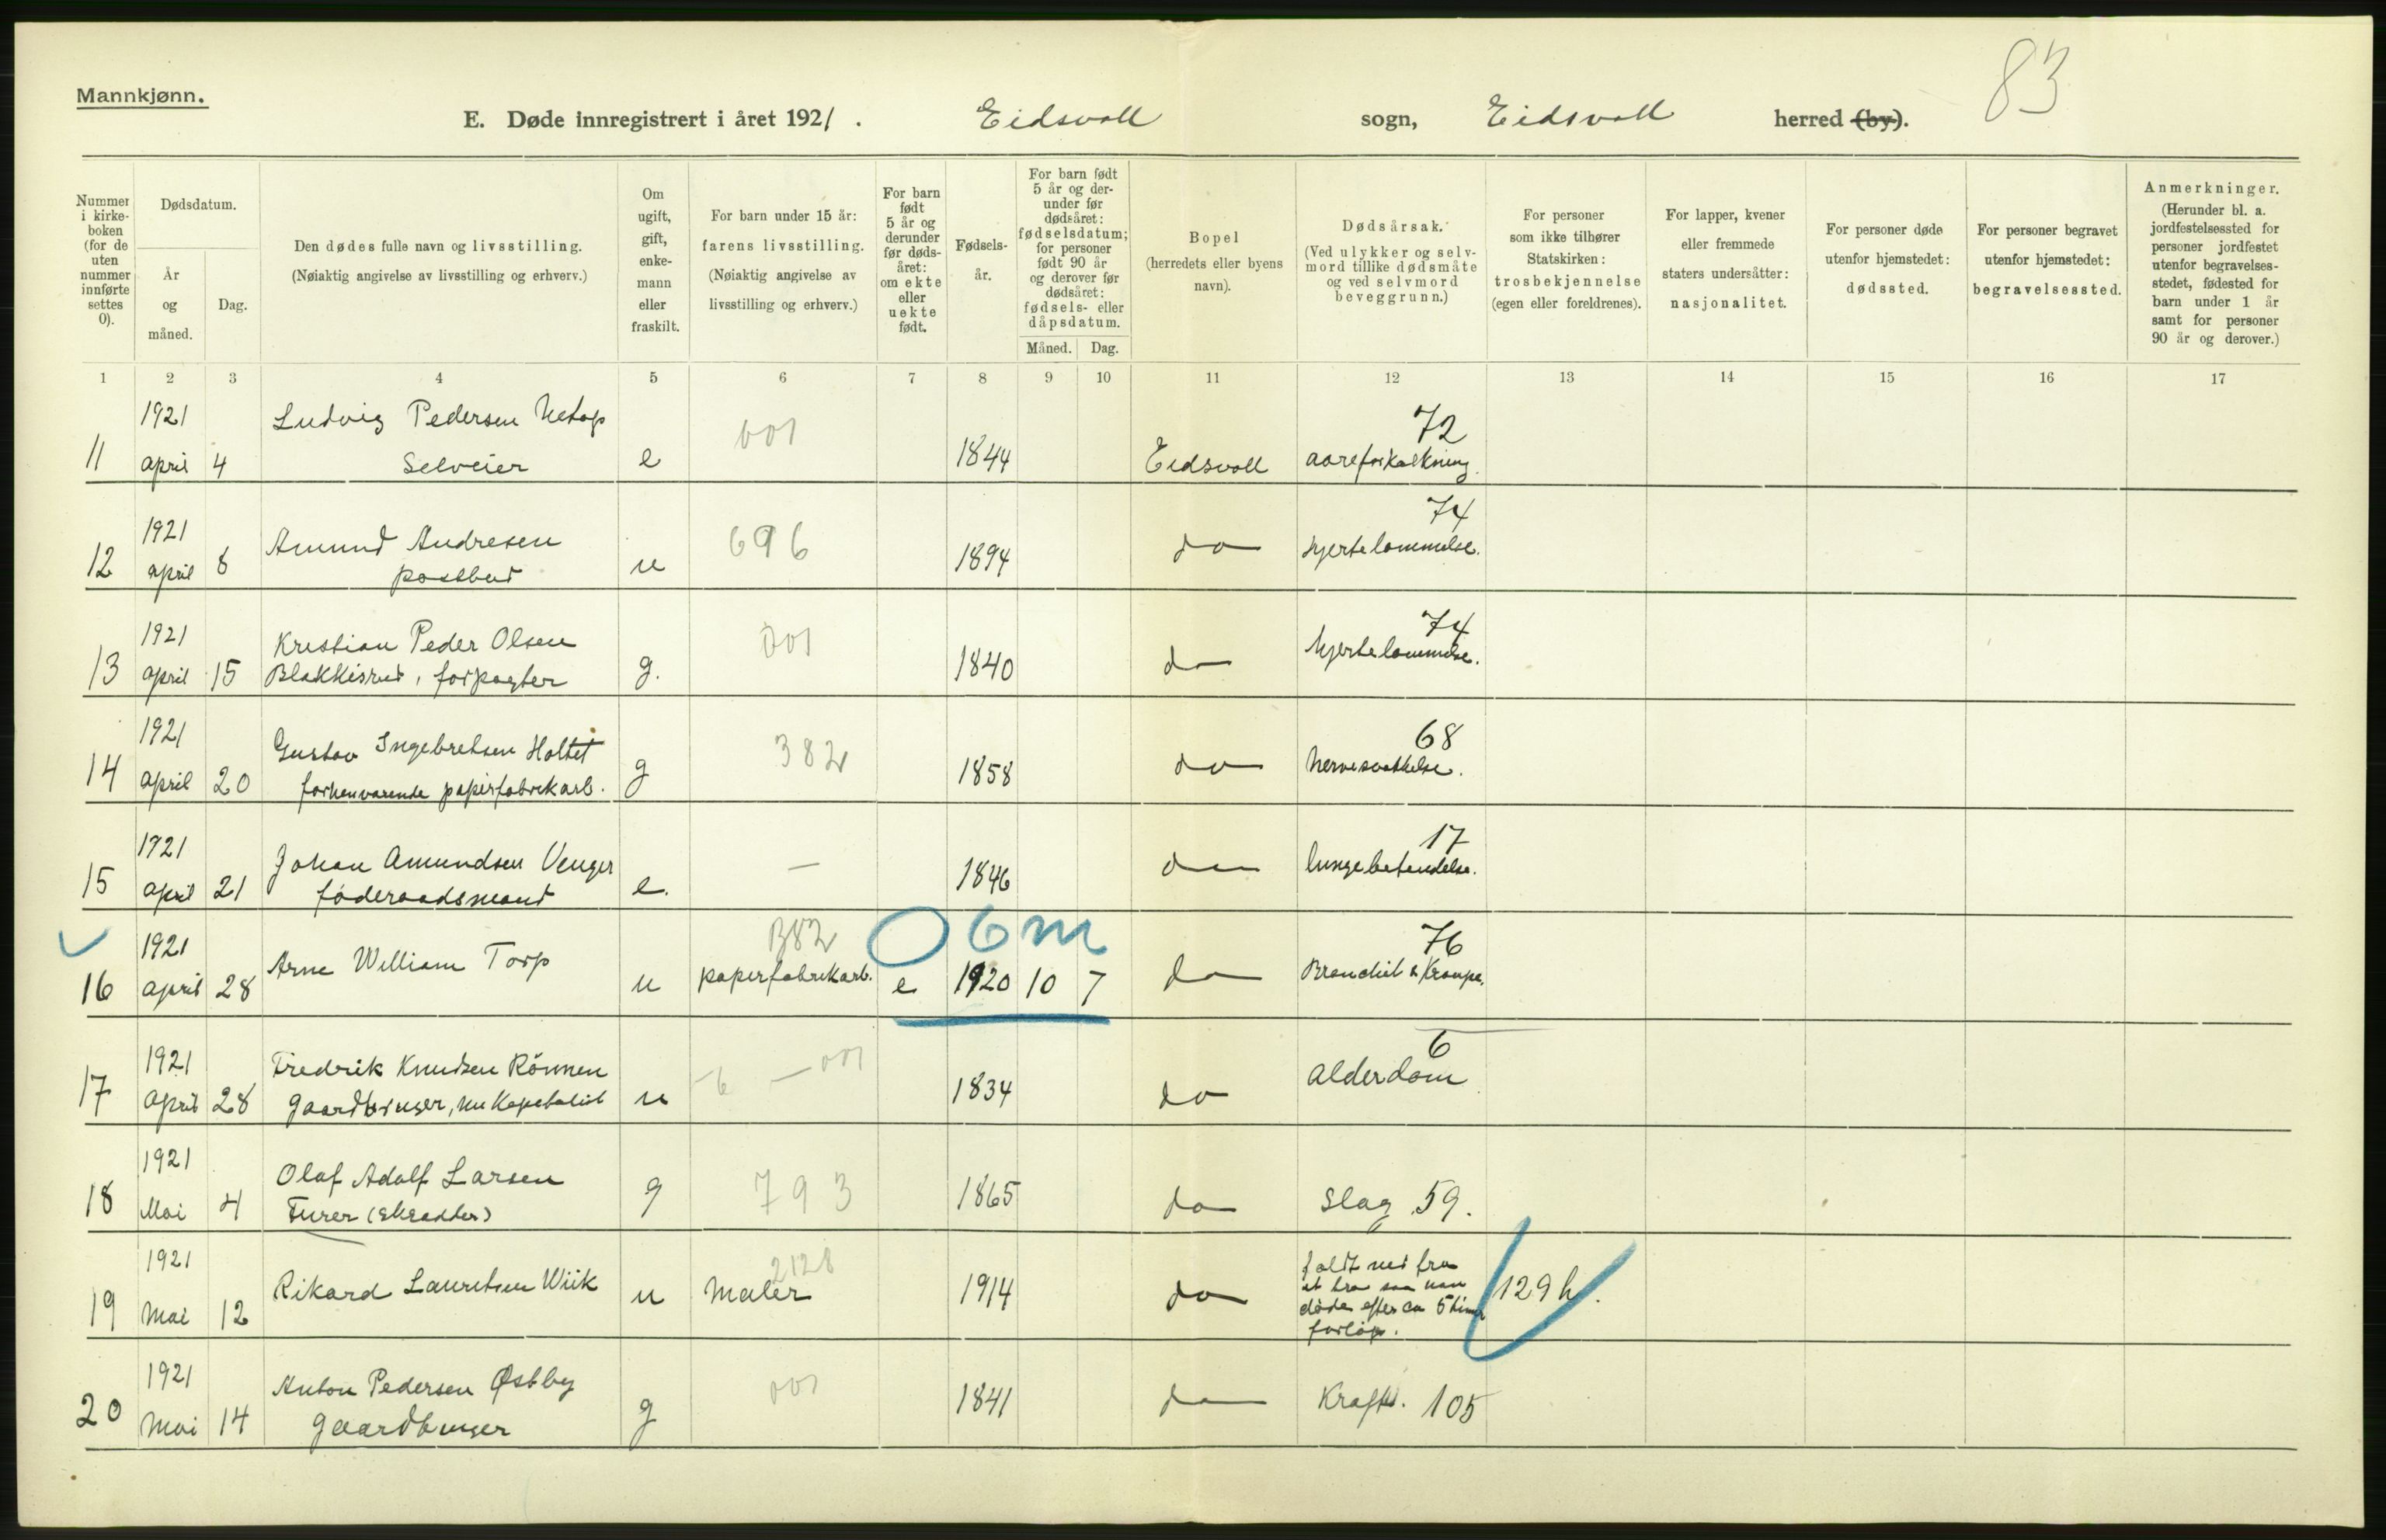 83
Mannkjønn.
E. Døde innregistrert i året 1921. Eidsvoll sogn, Eidsvoll herred (by).
Nummer i kirkeboken (for de uten nummer innførte settes 0).
Dødsdatum.
År og måned.
Dag.
Den dødes fulle navn og livsstilling.
(Nøiaktig angivelse av livsstilling og erhverv.)
Om ugift, gift, enkemann eller fraskilt.
For barn under 15 år:
farens livsstilling.
(Nøiaktig angivelse av livsstilling og erhverv.)
For barn født 5 år og derunder før dødsåret: om ekte eller uekte født.
Fødselsår.
For barn født 5 år og derunder før dødsåret: fødselsdatum; for personer født 90 år og derover før dødsåret: fødsels- eller dåpsdatum.
Måned. Dag.
Bopel
(herredets eller byens navn).
Dødsårsak.
(Ved ulykker og selvmord tillike dødsmåte og ved selvmord beveggrunn.)
For personer som ikke tilhører Statskirken: trosbekjennelse (egen eller foreldrenes).
For lapper, kvener eller fremmede staters undersåtter: nasjonalitet.
For personer døde utenfor hjemstedet: dødssted.
For personer begravet utenfor hjemstedet: begravelsessted.
Anmerkninger.
(Herunder bl. a. jordfestelsessted for personer jordfestet utenfor begravelsesstedet, fødested for barn under 1 år samt for personer 90 år og derover.)
1 2 3 4 5 6 7 8 9 10 11 12 13 14 15 16 17
1921 Ludvig Pedersen 001 72
11 april 4 Selveier e 1844 Eidsvoll aareforkalkning.
1921 Amund Andresen 696 74
12 april 8 postbud u 1894 do hjertelammelse.
1921 Kristian Peder Olsen 001 74
13 april 15 Blakkisrud, forpagter g. 1840 do hjertelammelse.
1921 Gustav Ingebretsen Holtet 382 68
14 april 20 forhenværende papirfabrikarb. g 1858 do Nervesvækkelse.
1921 Johan Amundsen Venger — 17
15 april 21 föderaadsmand e. 1846 do lungebetendelse.
1921 Arne William Torp 382 O 6 m 76
16 april 28 u papirfabrikarb. e 1920 10 7 do Bronchit & Krampe.
1921 Fredrik Knudsen Rönnen — 001 6
17 april 28 gaardbruger, nu Kapitalist u 1834 do Alderdom
1921 Olaf Adolf Larsen 793
18 Mai 4 Furer (Skrædder) g 1865 do Slag 59.
1921 Rikard Lauritsen Wiik 2128 faldt ned fra
19 Mai 12 u Maler 1914 do et saa han 129 h.
döde efter ca 5 timer
forlöp.
1921 Anton Pedersen Østby 001
20 Mai 14 gaardbruger g 1841 do Kræft. 105